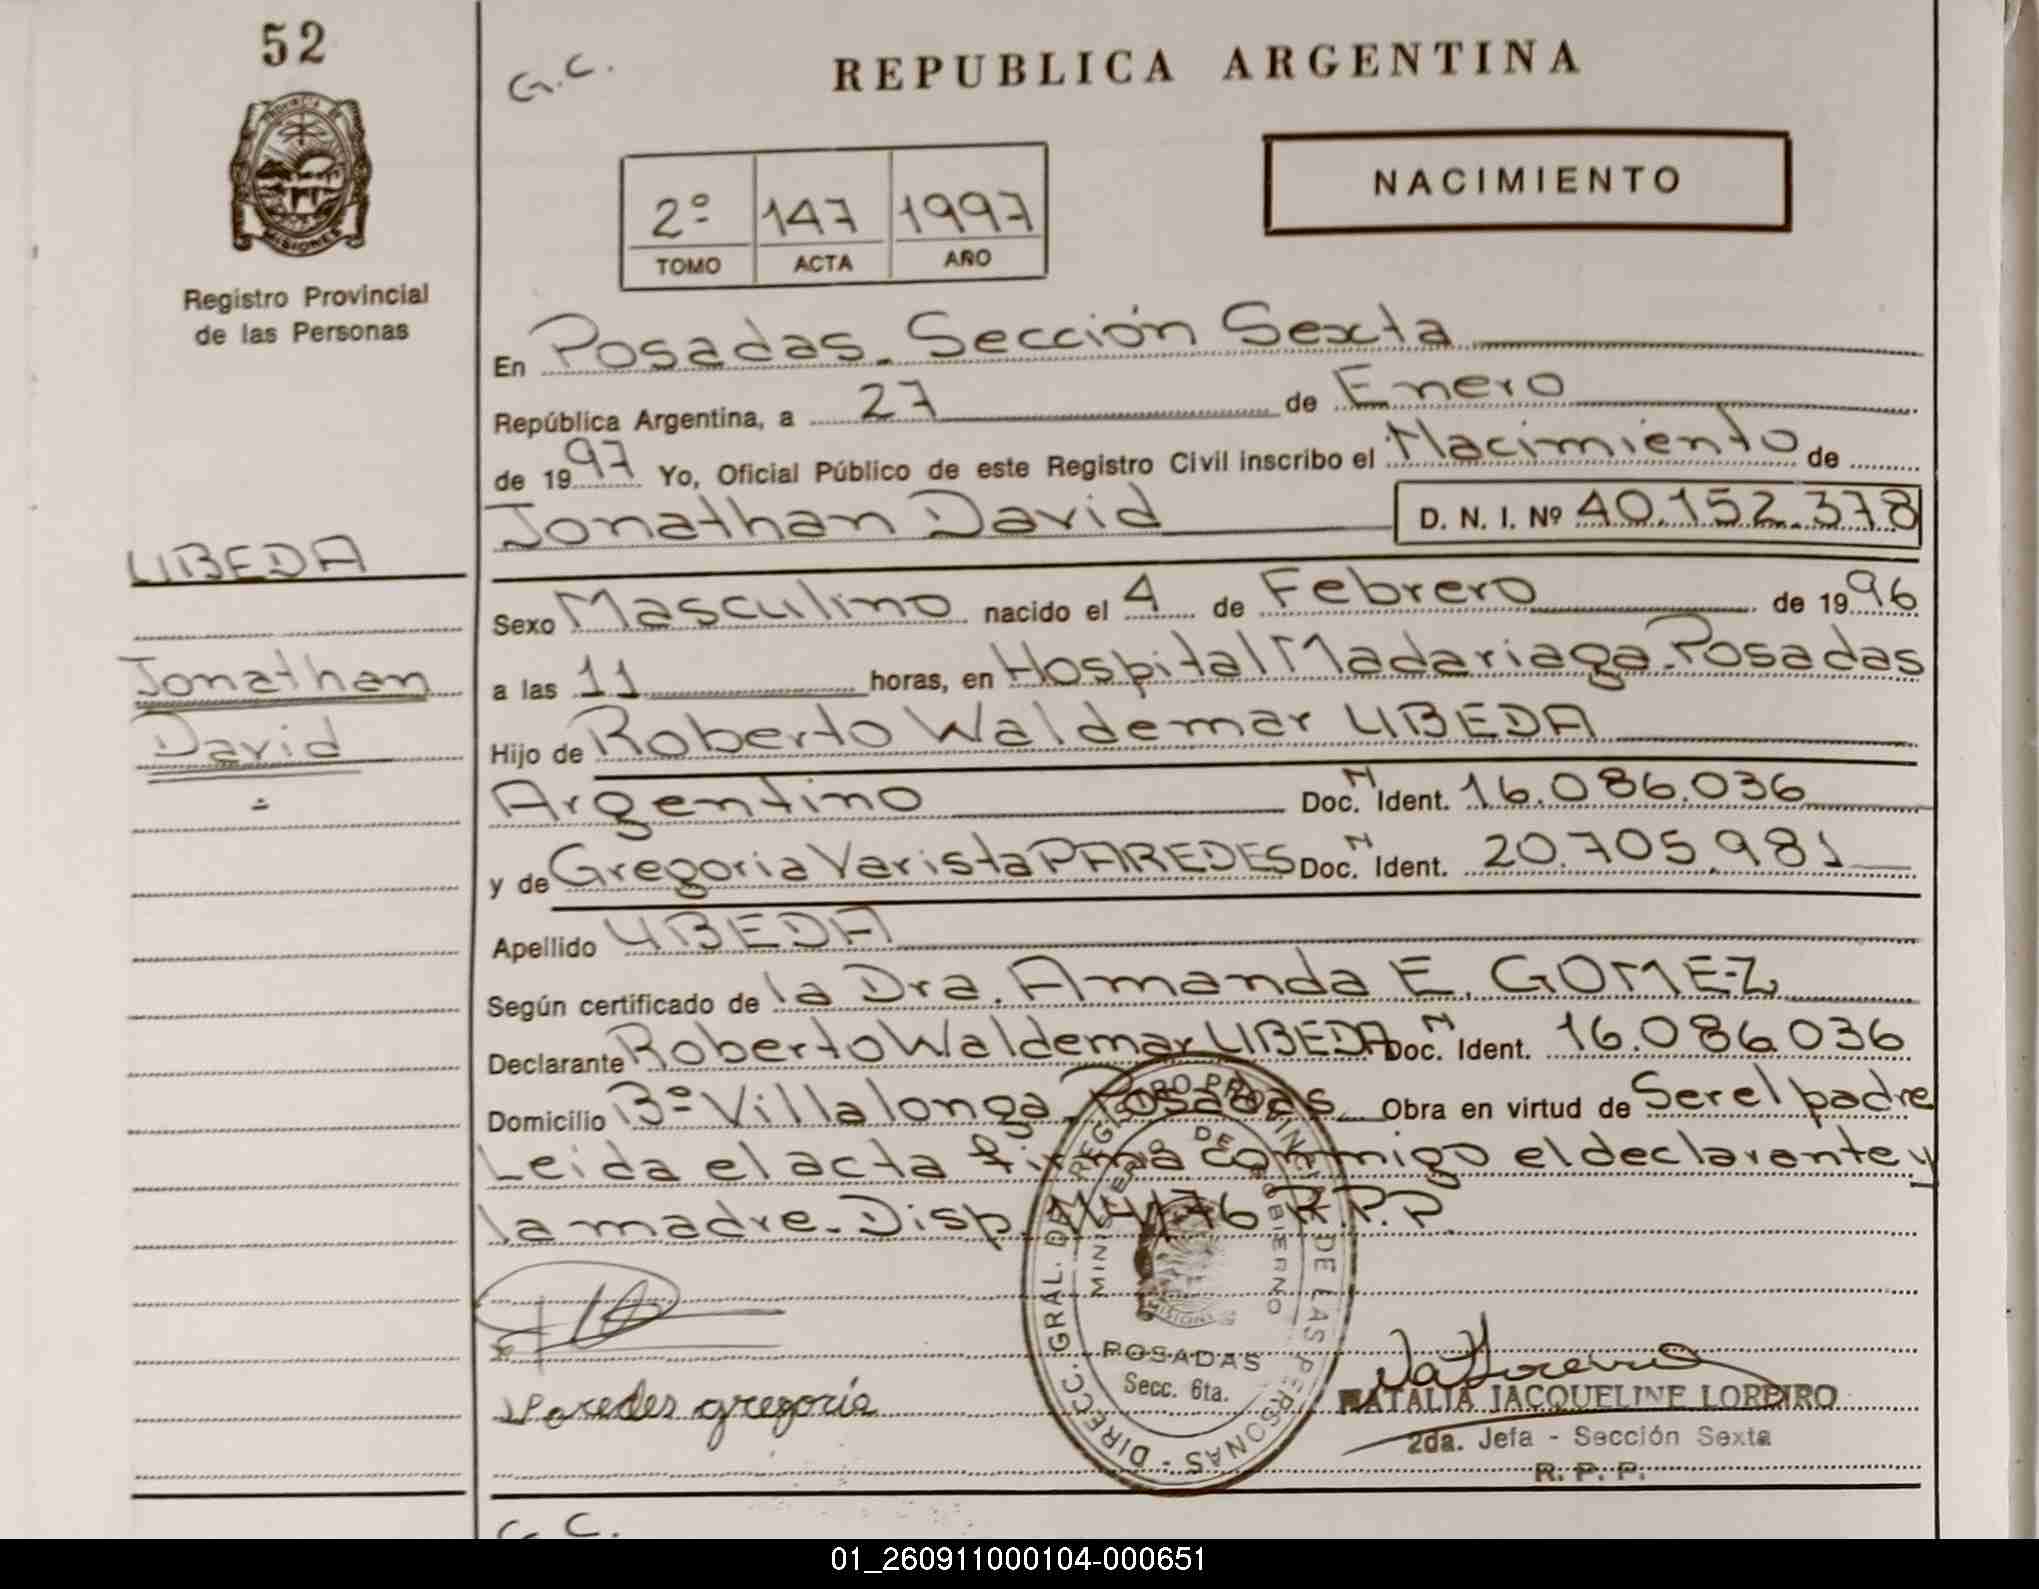 52
G.C.
REPUBLICA ARGENTINA
PROVINCIA DE
MISIONES
Registro Provincial
de las Personas
2º 147 1997
TOMO ACTA AÑO
NACIMIENTO
En Posadas. Sección Sexta
República Argentina, a 27 de Enero
de 1997 Yo, Oficial Público de este Registro Civil inscribo el Nacimiento de
Jonathan David D. N. I. Nº 40.152.378
UBEDA
Jonathan
David
Sexo Masculino nacido el 4 de Febrero de 1996
a las 11 horas, en Hospital Madariaga. Posadas
Hijo de Roberto Waldemar UBEDA
Argentino Doc. N Ident. 16.086.036
y de Gregoria Varista PAREDES Doc. N Ident. 20.705.981
Apellido UBEDA
Según certificado de la Dra. Amanda E. GOMEZ
Declarante Roberto Waldemar UBEDA Doc. N Ident. 16.086.036
Domicilio Bº Villalonga. Posadas Obra en virtud de Ser el padre
Leida el acta firma conmigo el declarante y
la madre. Disp. 14/76 R.P.P.
DIRECC. GRAL. DEL REGISTRO PROVINCIAL DE LAS PERSONAS
MINISTERIO DE GOBIERNO
MISIONES
POSADAS
Secc. 6ta.
Paredes gregoria
NATALIA JACQUELINE LOREIRO
2da. Jefa - Sección Sexta
R. P. P.
G. C.
01_260911000104-000651